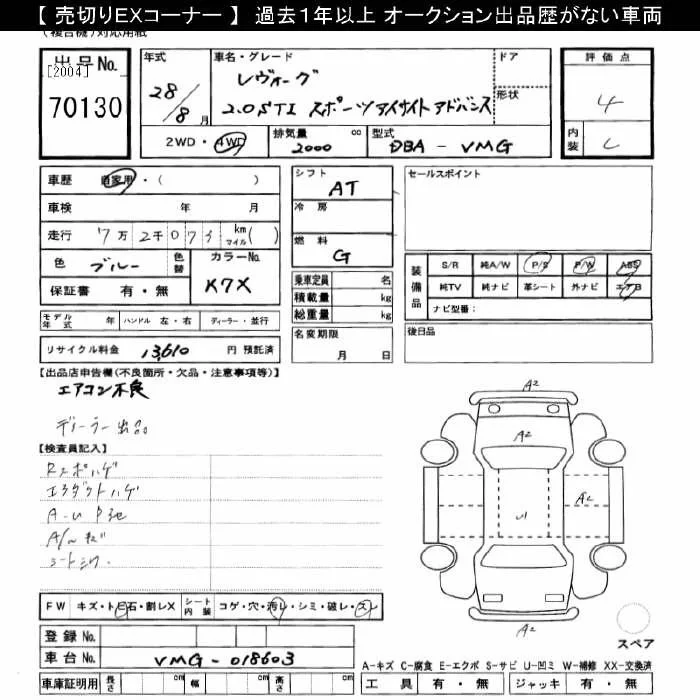 【 売切りEXコーナー 】 過去1年以上 オークション出品歴がない車両
(複合機)対応用紙
出品No.
[2004]
70130
年式
28/8月
車名・グレード
レヴォーグ
2.0STI スポーツアイサイトアドバンス
ドア
形状
2WD・4WD
排気量 2000 cc
型式 DBA - VMG
評価点
4
内装 C
車歴 自家用・( )
車検 年 月
走行 7万2千073 km マイル( )
色 ブルー
色替
カラーNo. K7X
保証書 有・無
シフト AT
冷房
燃料 G
乗車定員 名
積載量 kg
総重量 kg
セールスポイント
装備品
S/R 純A/W P/S P/W ABS
純TV 純ナビ 革シート 外ナビ エアB
ナビ型番:
モデル年式 年 ハンドル 左・右 ディーラー・並行
リサイクル料金 13,610 円 預託済
名変期限 月 日
後日品
【出品店申告欄(不良箇所・欠品・注意事項等)】
エアコン不良
ディーラー出品
【検査員記入】
エアダクトハゲ
シートシワ
A2
A2
U1
A2
A2
FW キズ・トビ石・割レX シート内装 コゲ・穴・汚レ・シミ・破レ・スレ
登録No.
車台No. VMG-018603
車庫証明用 長さ cm 幅 cm 高さ cm
スペア
A-キズ C-腐食 E-エクボ S-サビ U-凹ミ W-補修 XX-交換済
工具 有・無 ジャッキ 有・無